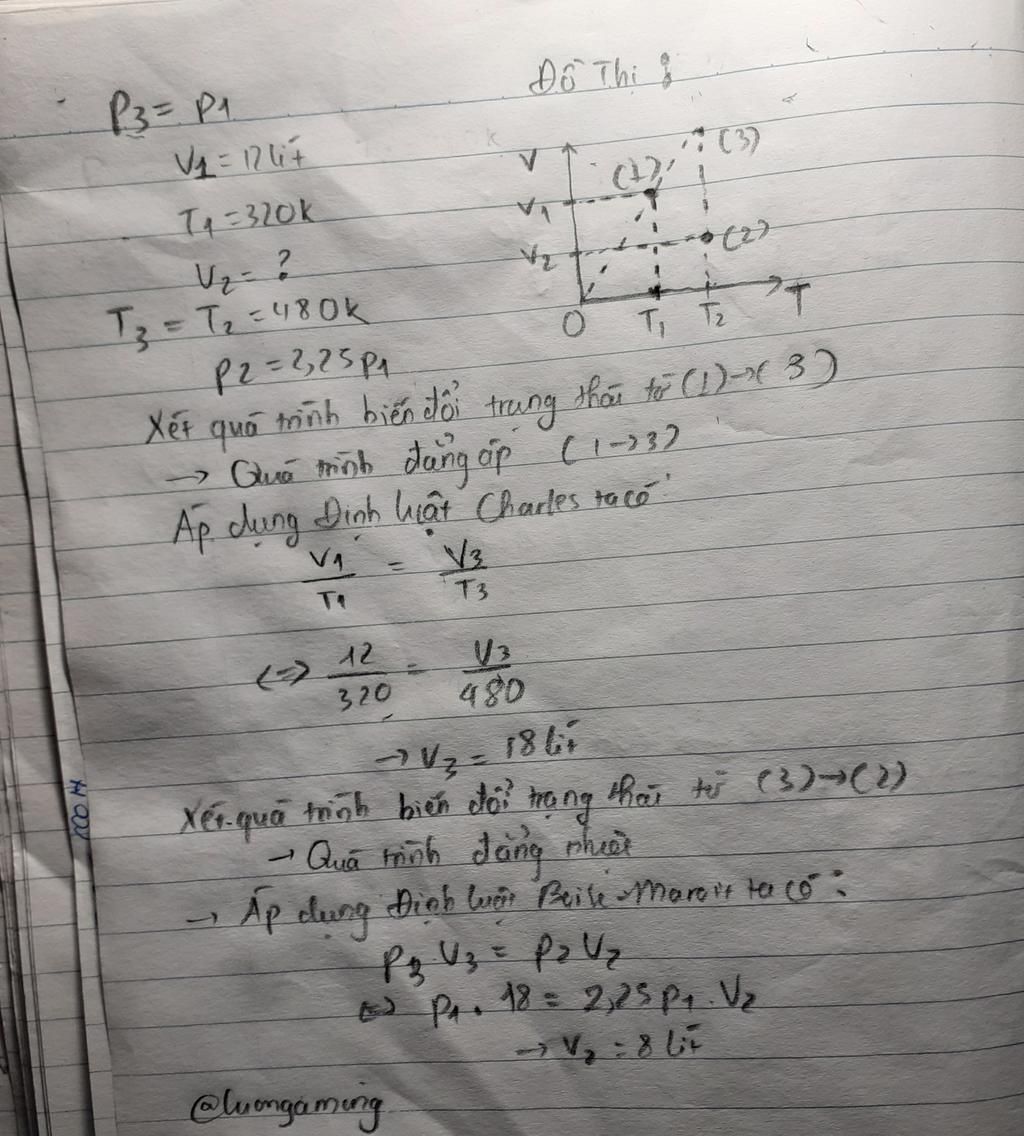 Đồ Thị :
P3 = P1
V1 = 12 lít
T1 = 320K
V2 = ?
T3 = T2 = 480K
P2 = 2,25P1
V
(1)
(3)
V1
V2
(2)
O
T1
T2
T
Xét quá trình biến đổi trạng thái từ (1)→(3)
→ Quá trình đẳng áp (1→3)
Áp dụng Định luật Charles ta có
V1/T1 = V3/T3
<=> 12/320 = V3/480
→ V3 = 18 lít
Xét quá trình biến đổi trạng thái từ (3)→(2)
→ Quá trình đẳng nhiệt
→ Áp dụng Định luật ta có :
P3 V3 = P2 V2
<=> P1 . 18 = 2,25P1 . V2
→ V2 = 8 lít
@luongaming